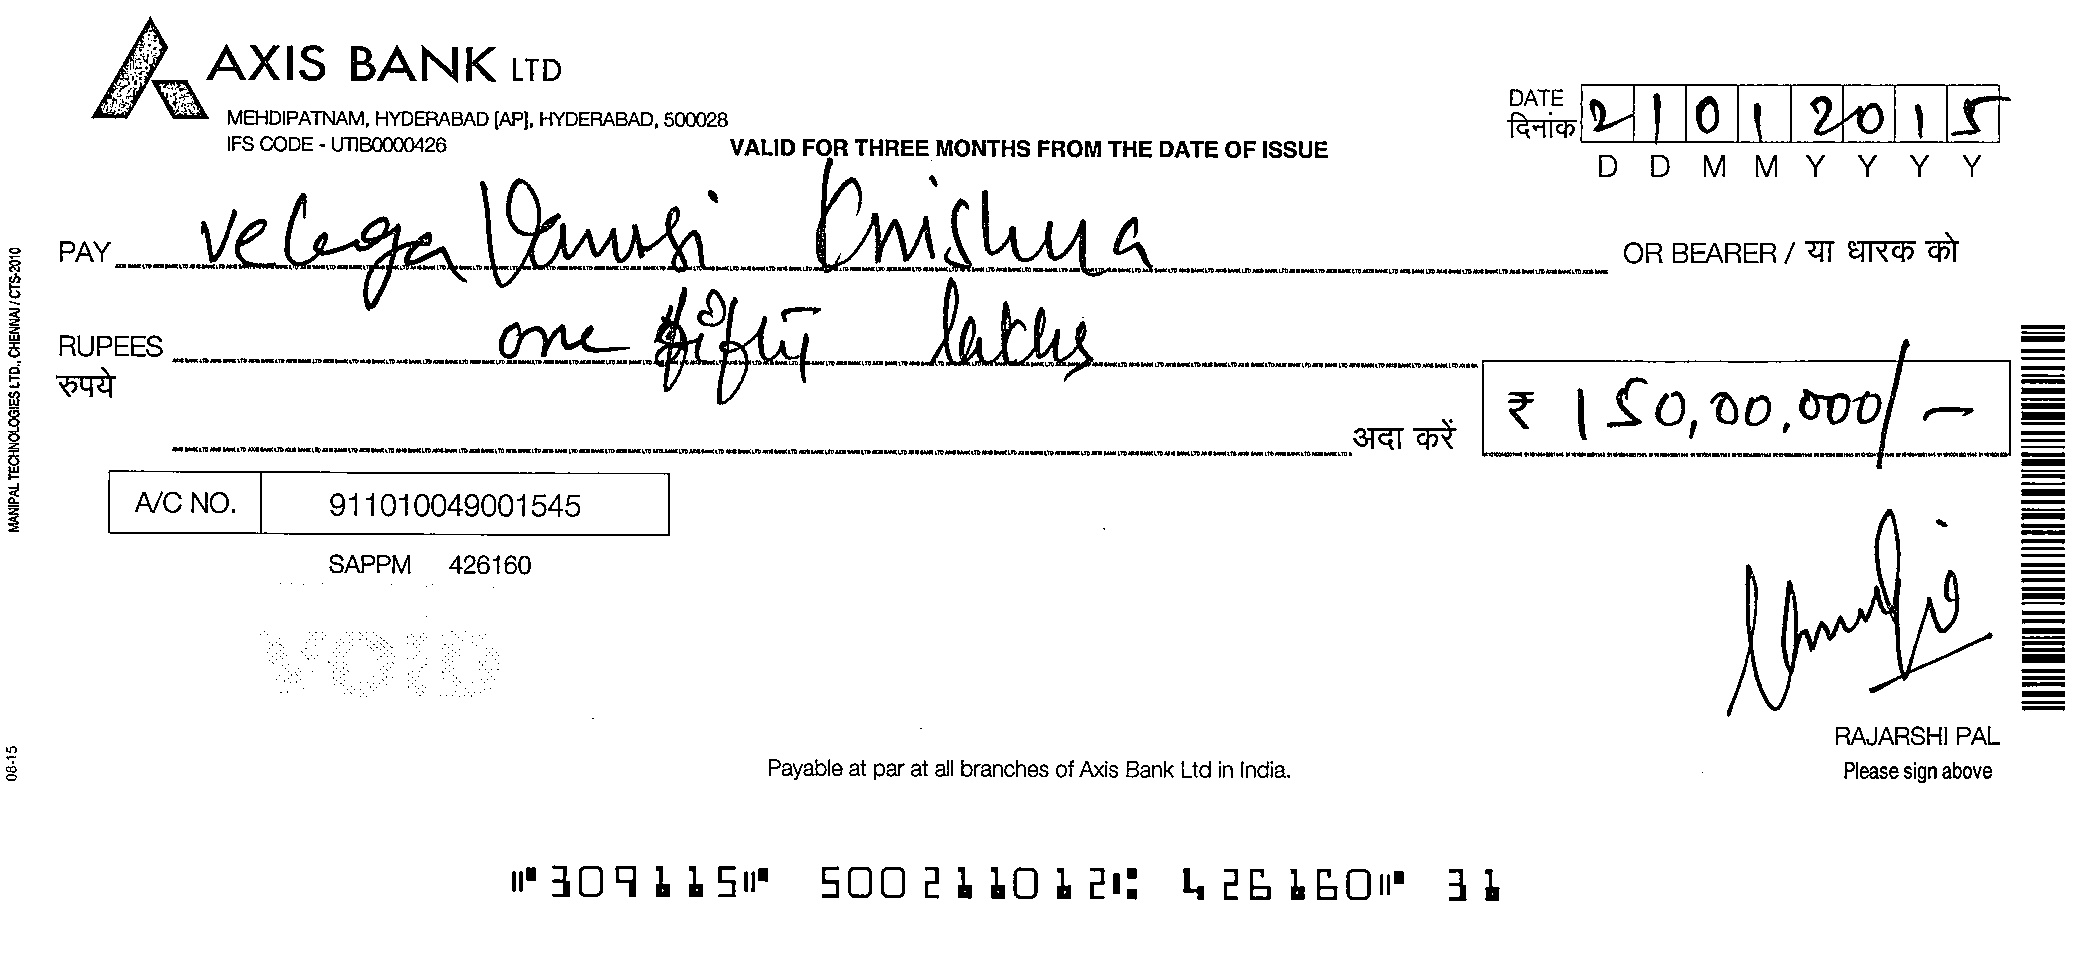 AXIS BANK LTD
MEHDIPATNAM, HYDERABAD [AP], HYDERABAD, 500028
IFS CODE - UTIB0000426
VALID FOR THREE MONTHS FROM THE DATE OF ISSUE
DATE
दिनांक
21012015
D D M M Y Y Y Y
PAY Velega Vamsi Krishna OR BEARER / या धारक को
RUPEES one fifty lakhs
रुपये
अदा करें ₹ 150,00,000/-
A/C NO. 911010049001545
SAPPM 426160
VOID
RAJARSHI PAL
Please sign above
Payable at par at all branches of Axis Bank Ltd in India.
MANIPAL TECHNOLOGIES LTD., CHENNAI / CTS-2010
08-15
⑈309115⑈ 500211012⑆ 426160⑈ 31